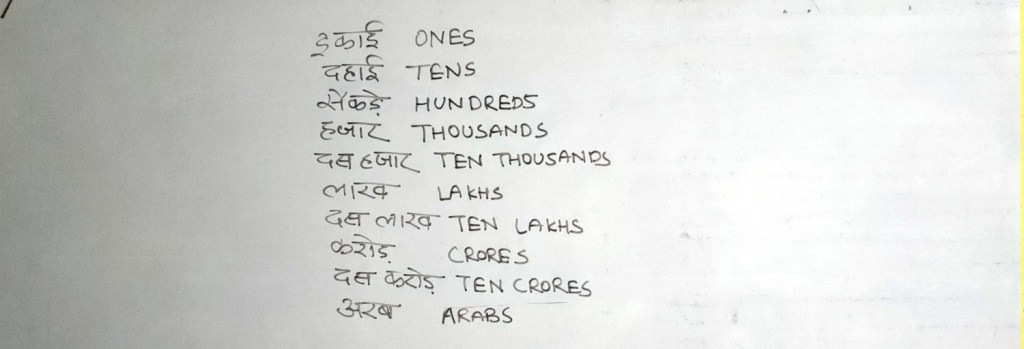 इकाई ONES
दहाई TENS
सैकड़े HUNDREDS
हजार THOUSANDS
दस हजार TEN THOUSANDS
लाख LAKHS
दस लाख TEN LAKHS
करोड़ CRORES
दस करोड़ TEN CRORES
अरब ARABS